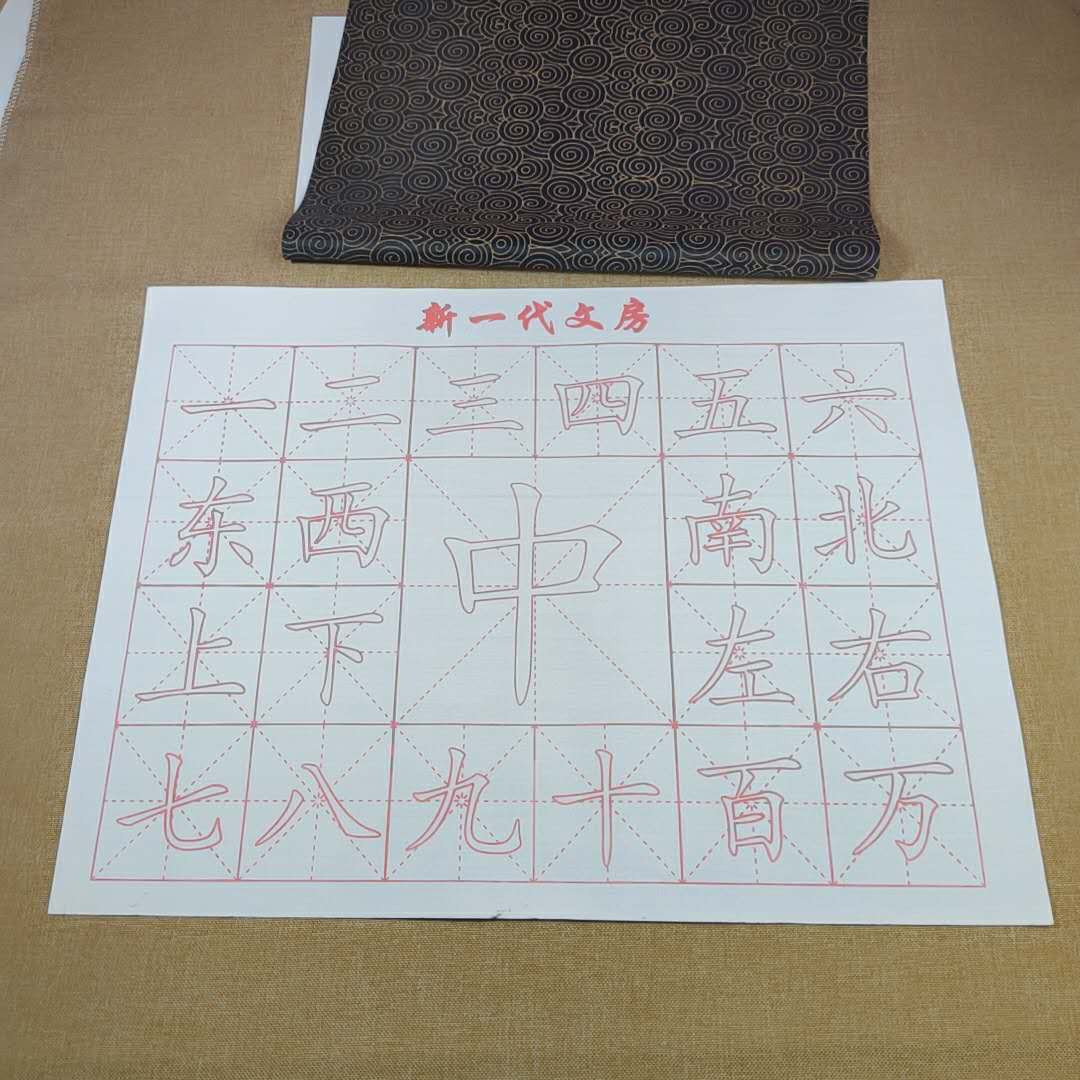 新一代文房
一二三四五六
东西南北
中
上下左右
七八九十百万